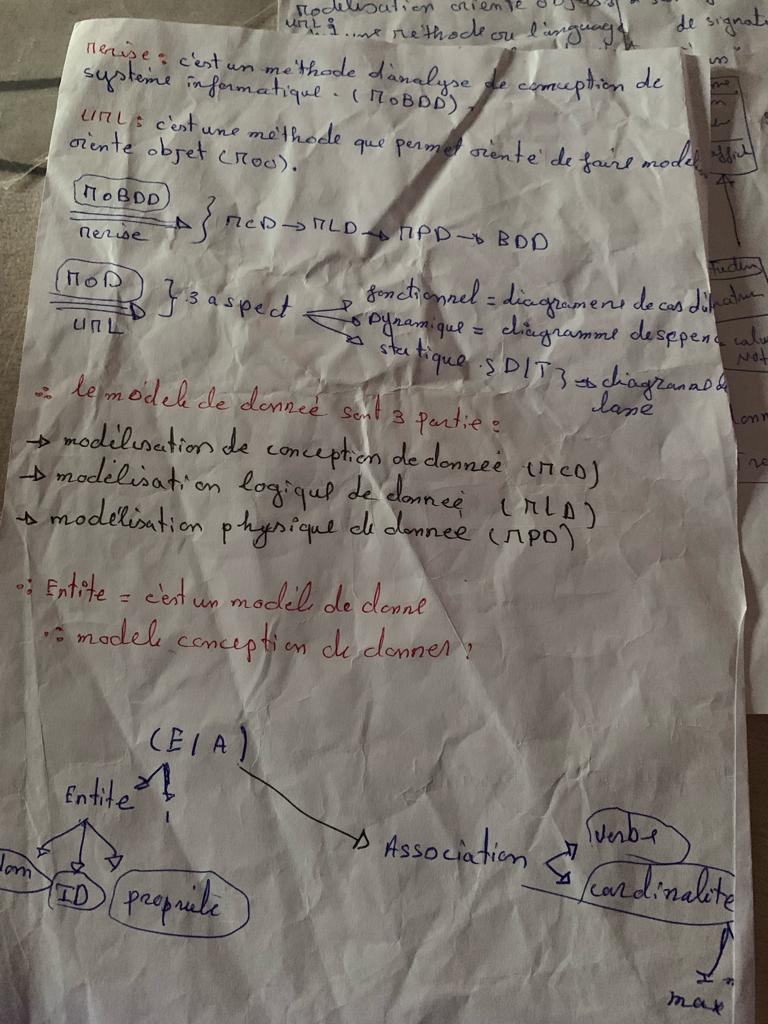 modélisation oriente objets
UML : une méthode ou language
de signati
merise : c'est un méthode d'analyse de comception de
système informatique. (MOBDD).
UML : c'est une méthode que permet orienté de faire model
oriente objet (MOO).
MOBDD
merise
} MCD → MLD → MPD → BDD
MOD
UML
} 3 aspect
fonctionnel = diagramene de cas d'
Dynamique = diagramme de
statique {D/T} → diagramme de
lane
∴ le modele de donneé sont 3 partie :
→ modélisation de conception de donneé (MCD)
→ modélisation logique de donneé (MLD)
→ modélisation physique de donneé (MPD)
∴ Entite = c'est un modéle de donne
∴ modele conception de donner :
(E/A)
Entite
ID
propriete
Association
verbe
cardinalité
max